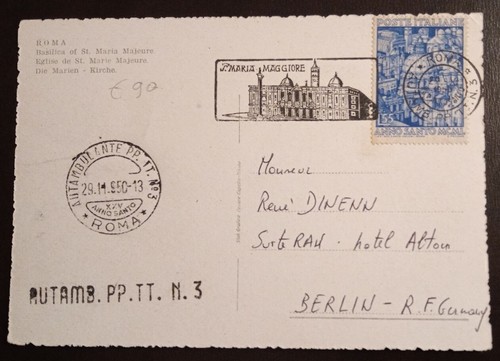 ROMA
Basilica of St. Maria Majeure
Eglise de St. Marie Majeure
Die Marien - Kirche.
€90
S. MARIA MAGGIORE
POSTE ITALIANE
L. 55
ANNO SANTO MCML
ROMA
N. 3
AUTAMBULANTE PP. TT. N° 3
29.11.950-13
XXV
ANNO SANTO
* ROMA *
AUTAMB. PP. TT. N. 3
Monsieur
René DINENN
Suite RAH - hotel Altom
BERLIN - R.F. Germany